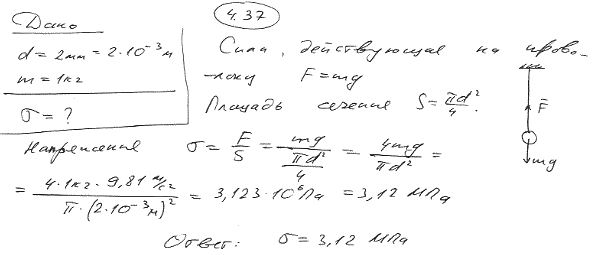 4.37
Дано
d = 2мм = 2·10⁻³ м
m = 1кг
σ = ?
Сила, действующая на прово-
локу F = mg
Площадь сечения S = πd²/4.
F̄
mg
Напряжение σ = F/S = mg/(πd²/4) = 4mg/πd² =
= 4·1кг·9,81 м/с² / π·(2·10⁻³м)² = 3,123·10⁶ Па = 3,12 МПа
Ответ: σ = 3,12 МПа